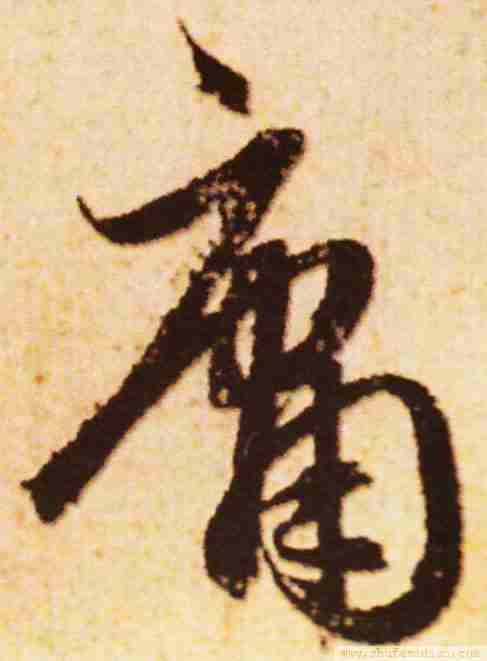 庸
www.shufazidian.com